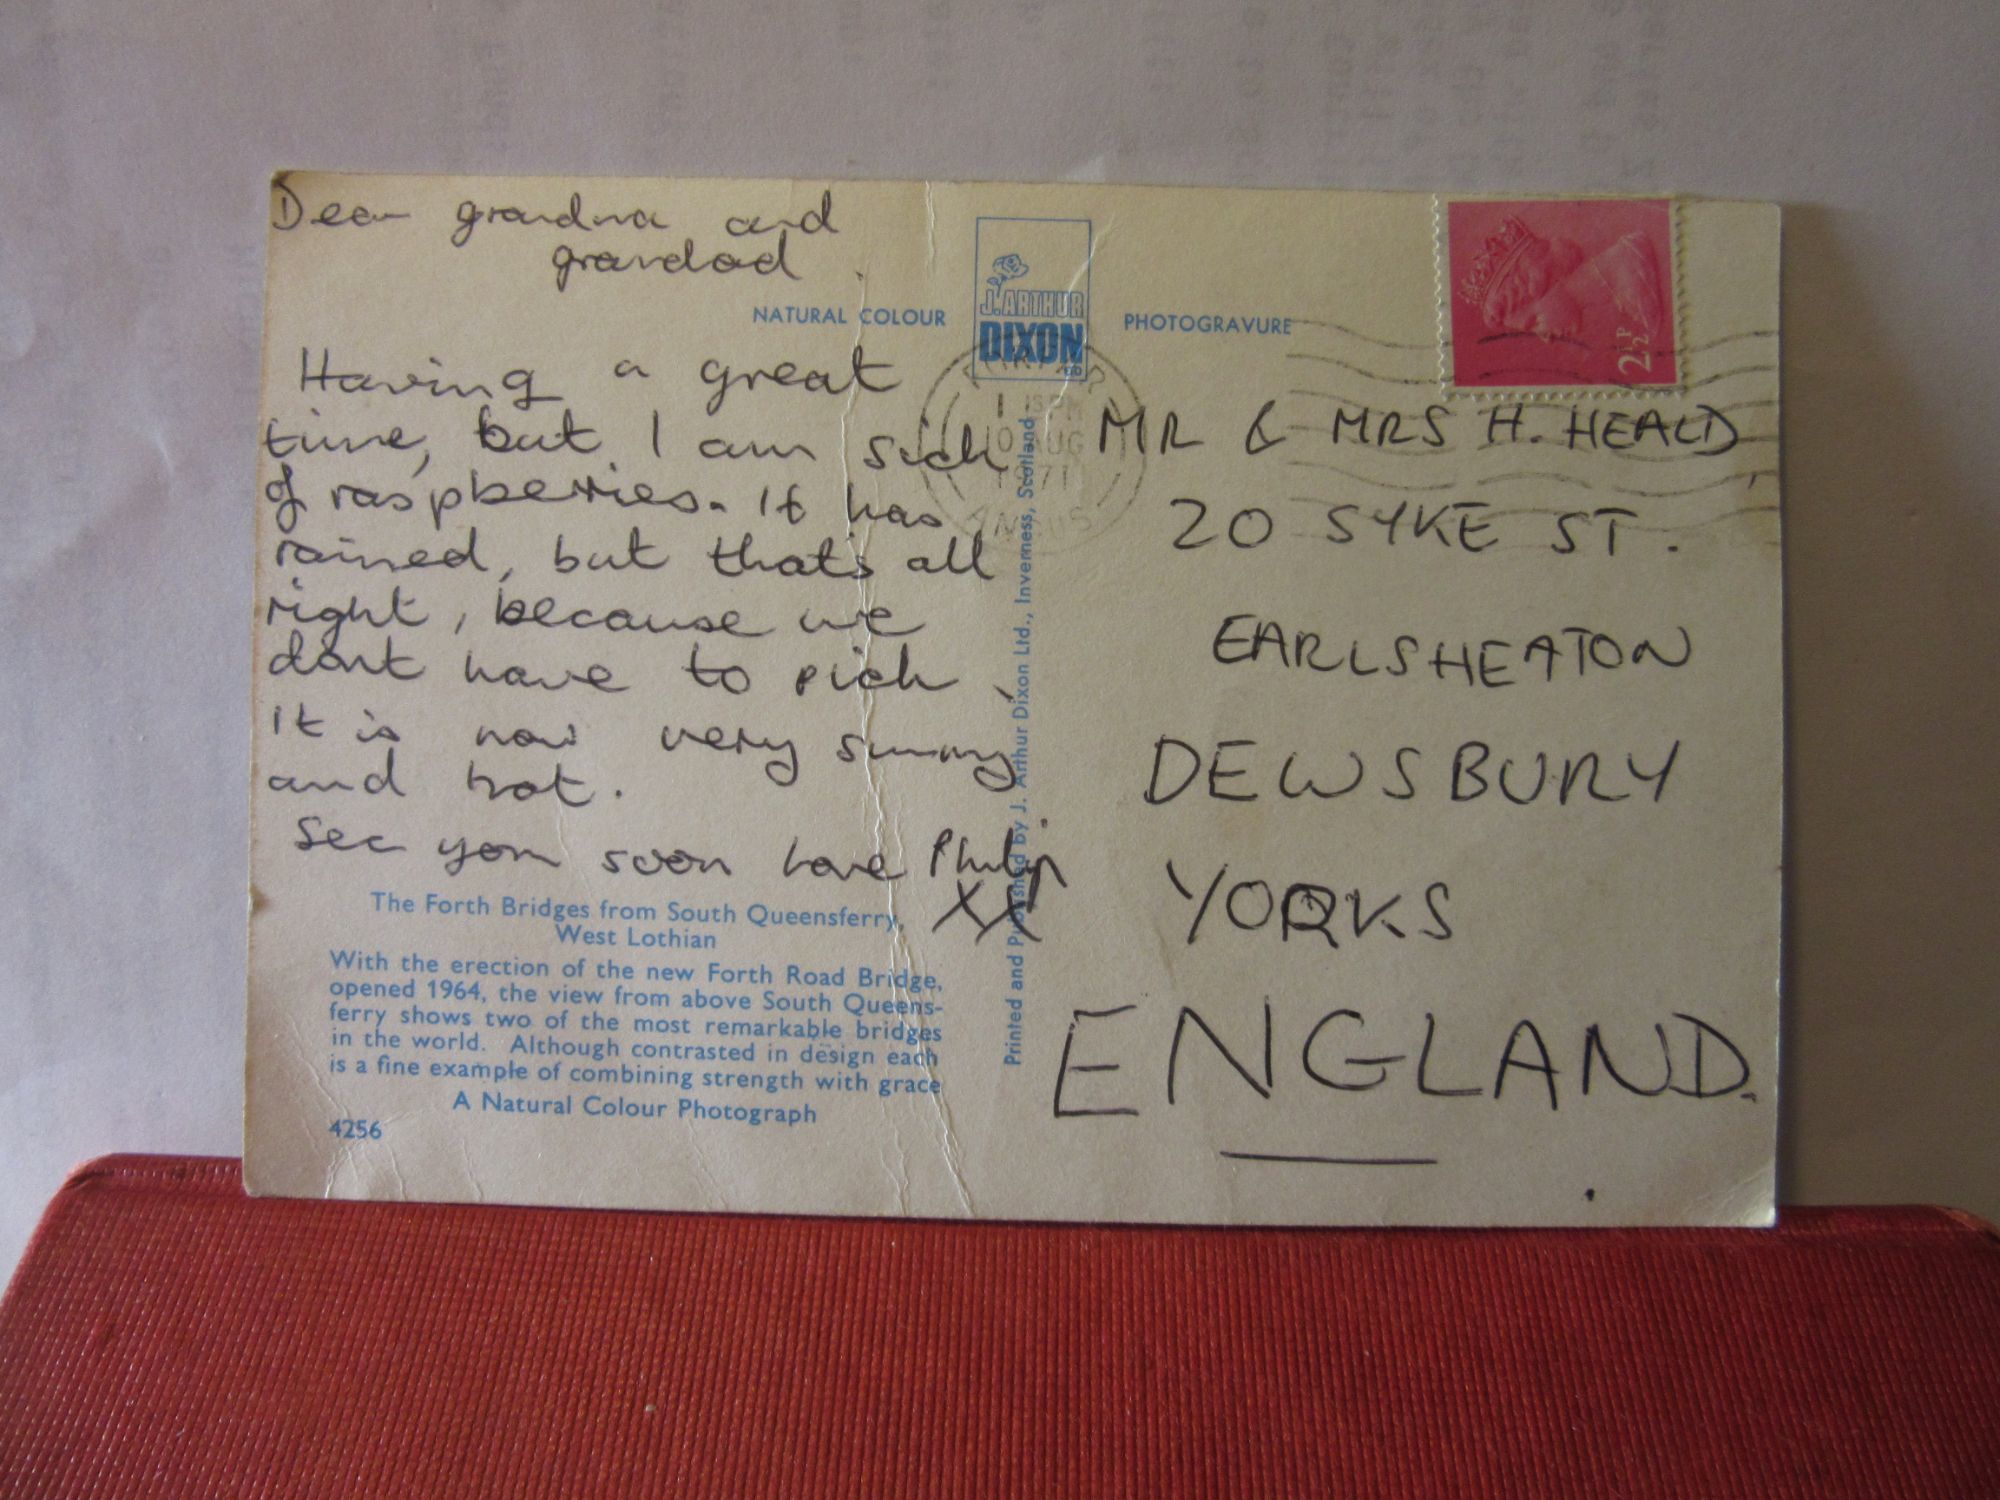 Dear grandma and
grandad.
Having a great
time, but I am sick
of raspberries. It has
rained, but that's all
right, because we
don't have to pick.
It is now very sunny
and hot.
See you soon love Philip
XX
NATURAL COLOUR
J. ARTHUR
DIXON
PHOTOGRAVURE
2½P
1 15 PM
10 AUG
1971
ANGUS
MR & MRS H. HEALD
20 SYKE ST.
EARLSHEATON
DEWSBURY
YORKS
ENGLAND.
Printed and Published by J. Arthur Dixon Ltd., Inverness, Scotland
The Forth Bridges from South Queensferry,
West Lothian
With the erection of the new Forth Road Bridge,
opened 1964, the view from above South Queens-
ferry shows two of the most remarkable bridges
in the world. Although contrasted in design each
is a fine example of combining strength with grace
A Natural Colour Photograph
4256